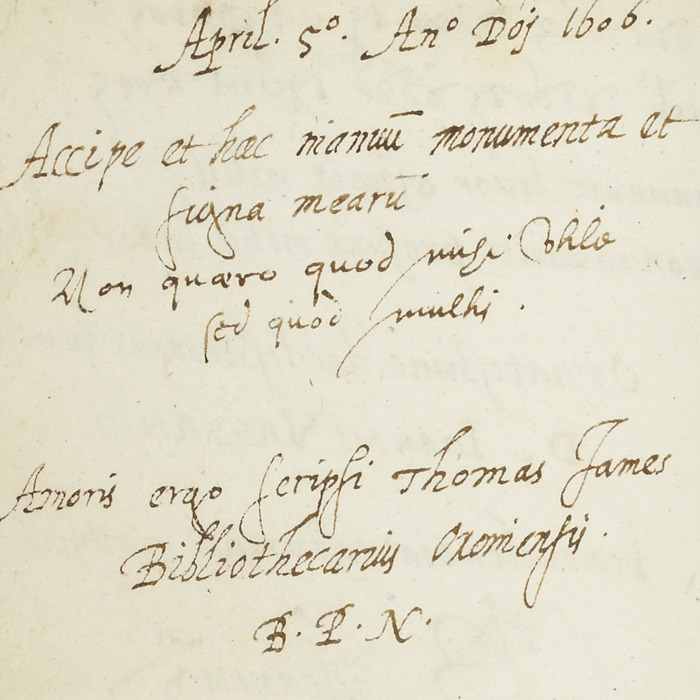 April. 5º. Anº Dōj 1606.
Accipe et hæc manuū monumenta et
signa mearū
Non quæro quod mihi vtile
sed quod multis.
Amoris ergo scripsi Thomas James
Bibliothecarius Oxoniensis.
B. P. N.